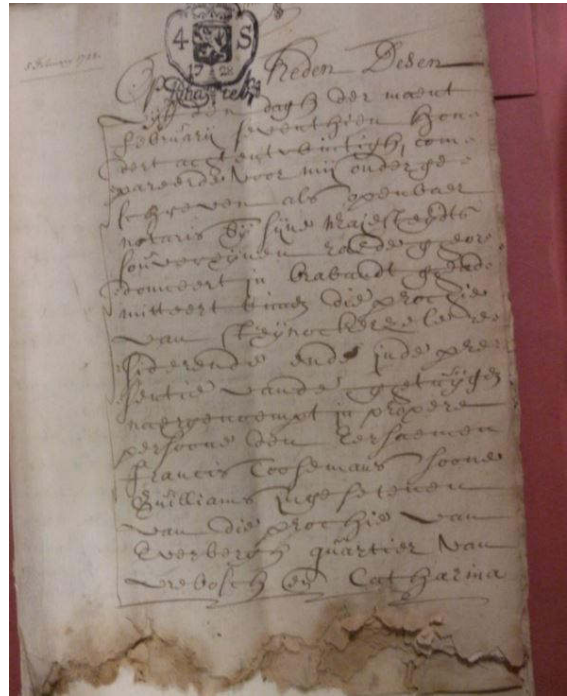 5 februarij 1728.
4 S
1728
Op Heden Desen
vijfden dagh der maent
februarij seventhien hon=
dert achtentwintigh, com=
pareerde voor mij onderge=
schreven als openbaer
notaris bij sijne Majesteyts
souvereynen raede geor=
donneert in brabandt gead=
mitteert binnen die prochie
van Steynockerzele re=
siderende ende inde pre=
sentie vande getuijgen
naergenoempt in propere
persoone den eersaemen
Francis Coosemans soone
Guilliams ingesetenen
van die prochie van
Everbergh quartier van
vrebosch en Catharina